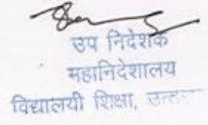 उप निदेशक
महानिदेशालय
विद्यालयी शिक्षा,